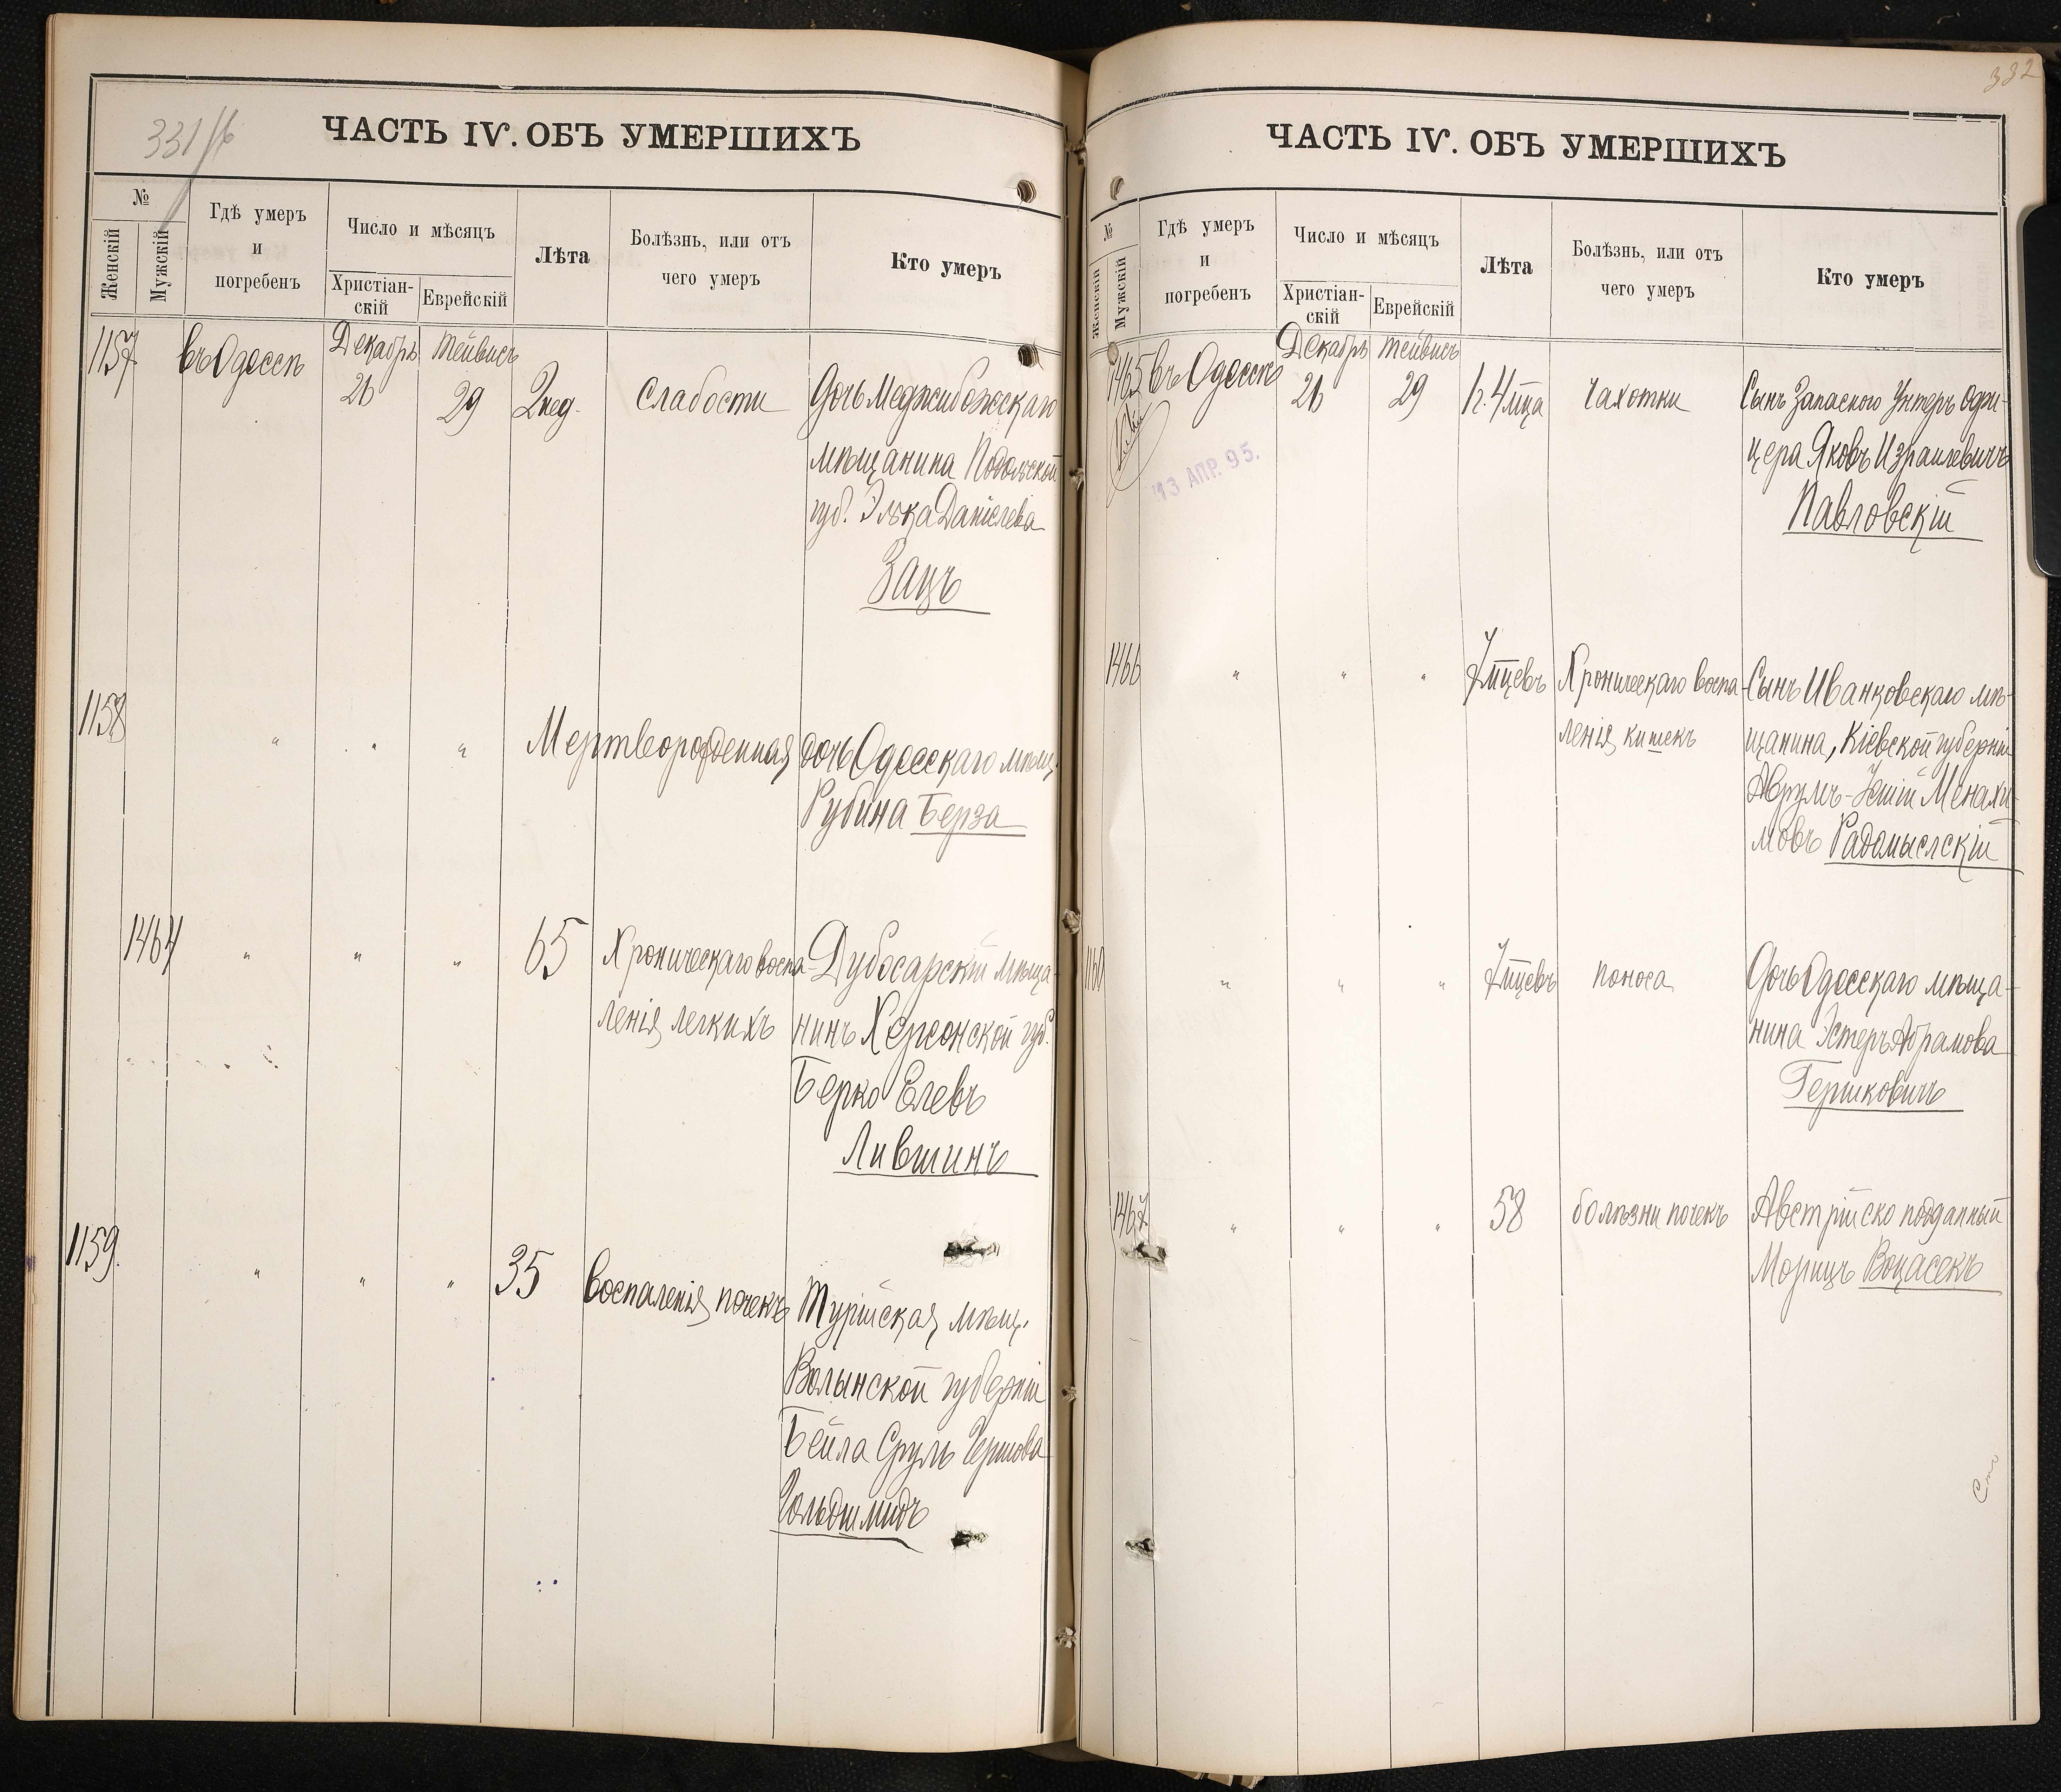 331
ЧАСТЬ IV. ОБЪ УМЕРШИХЪ
№
Женскій
Мужскій
Гдѣ умеръ
и
погребенъ
Число и мѣсяцъ
Христіан-
скій
Еврейскій
Лѣта
Болѣзнь, или отъ
чего умеръ
Кто умеръ
1157.
въ Одессѣ
Декабрь
26
Тейвисъ
29
2 нед.
Слабости
Дочь Меджибожскаго
мѣщанина Подольской
губ. Элька Даніелева
Зацъ
1158
" " "
Мертворожденная
дочь Одесскаго мѣщ.
Рубина Берза
1464
" " "
65
Хроническаго воспа-
ленія легкихъ
Дубосарскій мѣща-
нинъ Херсонской губ.
Берко Елевъ
Лившинъ
1159.
" " "
35
Воспаленія почекъ
Турійская мѣщ.
Волынской губерніи
Бейла Сруль Гершова
Гольдшмидъ
332
ЧАСТЬ IV. ОБЪ УМЕРШИХЪ
№
Женскій
Мужскій
Гдѣ умеръ
и
погребенъ
Число и мѣсяцъ
Христіан-
скій
Еврейскій
Лѣта
Болѣзнь, или отъ
чего умеръ
Кто умеръ
1465
въ Одессѣ
Декабрь
26
Тейвисъ
29
1 г. 4 мца
Чахотки
Сынъ Запаского Унтеръ Офи-
цера Яковъ Израилевичъ
Павловскій
13 АПР. 95.
1466
" " "
7 мцевъ
Хроническаго воспа-
ленія кишекъ
Сынъ Иванковскаго мѣ-
щанина, Кіевской губерніи
Аврумъ-Іешій Менахи-
мовъ Радомыслскій
1160
" " "
7 мцевъ
поноса
Дочь Одесскаго мѣща-
нина Эстеръ Абрамова
Гершковичъ
1467.
" " "
58
болѣзни почекъ
Австрійско подданный
Морицъ Воцасекъ